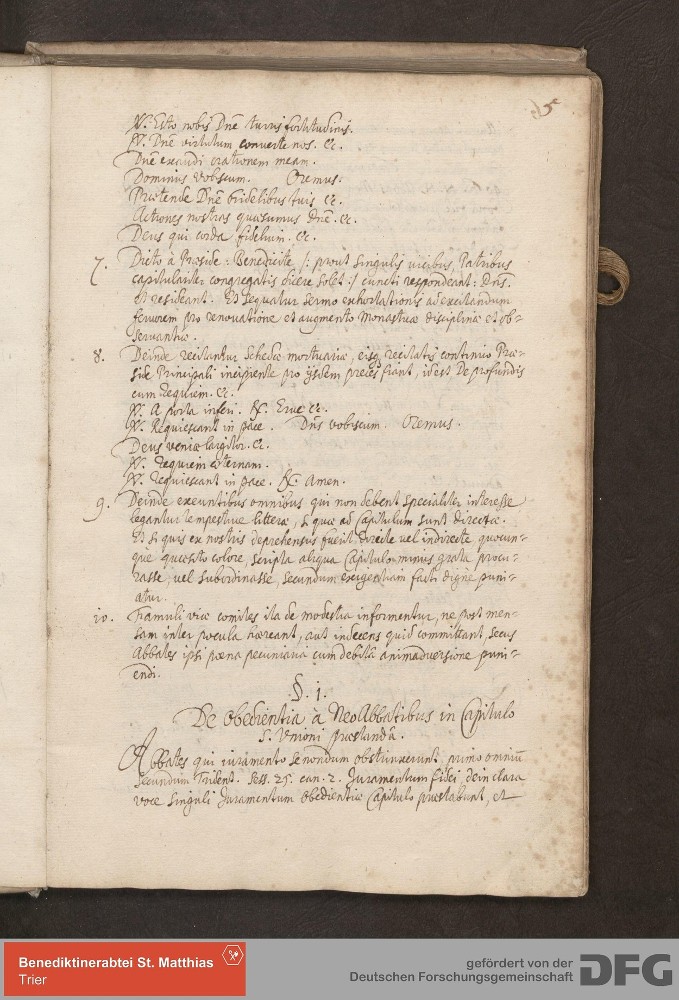 5
℣. Esto nobis Dnē turris fortitudinis.
℣. Dnē virtutum converte nos. &c.
Dnē exaudi orationem meam.
Dominus vobscum. Oremus.
Prætende Dnē fidelibus tuis &c.
Actiones nostras quæsumus Dnē. &c.
Deus qui corda fidelium. &c.
7. Dicto à Præside: Benedicite /: prout singulis vicibus Patribus
capitulariter congregatis dicere solet :/ cuncti respondeant: Dñs.
et resideant. Et sequatur sermo exhortationis ad excitandum
fervorem pro renovatione et augmento Monasticæ disciplinæ et ob-
servantiæ.
8. Deinde recitantur schedæ mortuariæ, eisq recitatis continuo Præ-
side Principali incipiente pro ijsdem preces fiant, id est De profundis
cum Requiem. &c.
℣. A porta inferi. ℟. Erue &c.
℣. Requiescant in pace. Dñs vobscum. Oremus.
Deus veniæ largitor. &c.
℣. requiem æternam.
℣. requiescant in pace. ℟. Amen.
9. Deinde exeuntibus omnibus qui non debent specialiter interesse
legantur tempestive litteræ, si quæ ad Capitulum sunt directæ.
Et si quis ex nostris deprehensus fuerit directe vel indirecte quocun-
que quæsito colore, scripta aliqua Capitulo minus grata procu-
rasse, vel subordinasse secundum exigentiam facti digne puni-
atur.
10. Famuli viæ comites ita de modestia informentur, ne post men-
sam inter pocula hæreant, aut indecens quid committant, secus
Abbates ipsi pœna pecuniaria cum debita animadversione puni-
endi.
§. 1.
De Obedientia à NeoAbbatibus in Capitulo
s. Unioni præstandâ.
Abbates qui iuramento se nondum obstrinxerunt, primo omniū
secundum Trident. sess. 25. can. 2. Juramentum fidei, dein clara
voce singuli Juramentum obedientiæ Capitulo præstabunt, et
Benediktinerabtei St. Matthias
Trier
gefördert von der
Deutschen Forschungsgemeinschaft
DFG